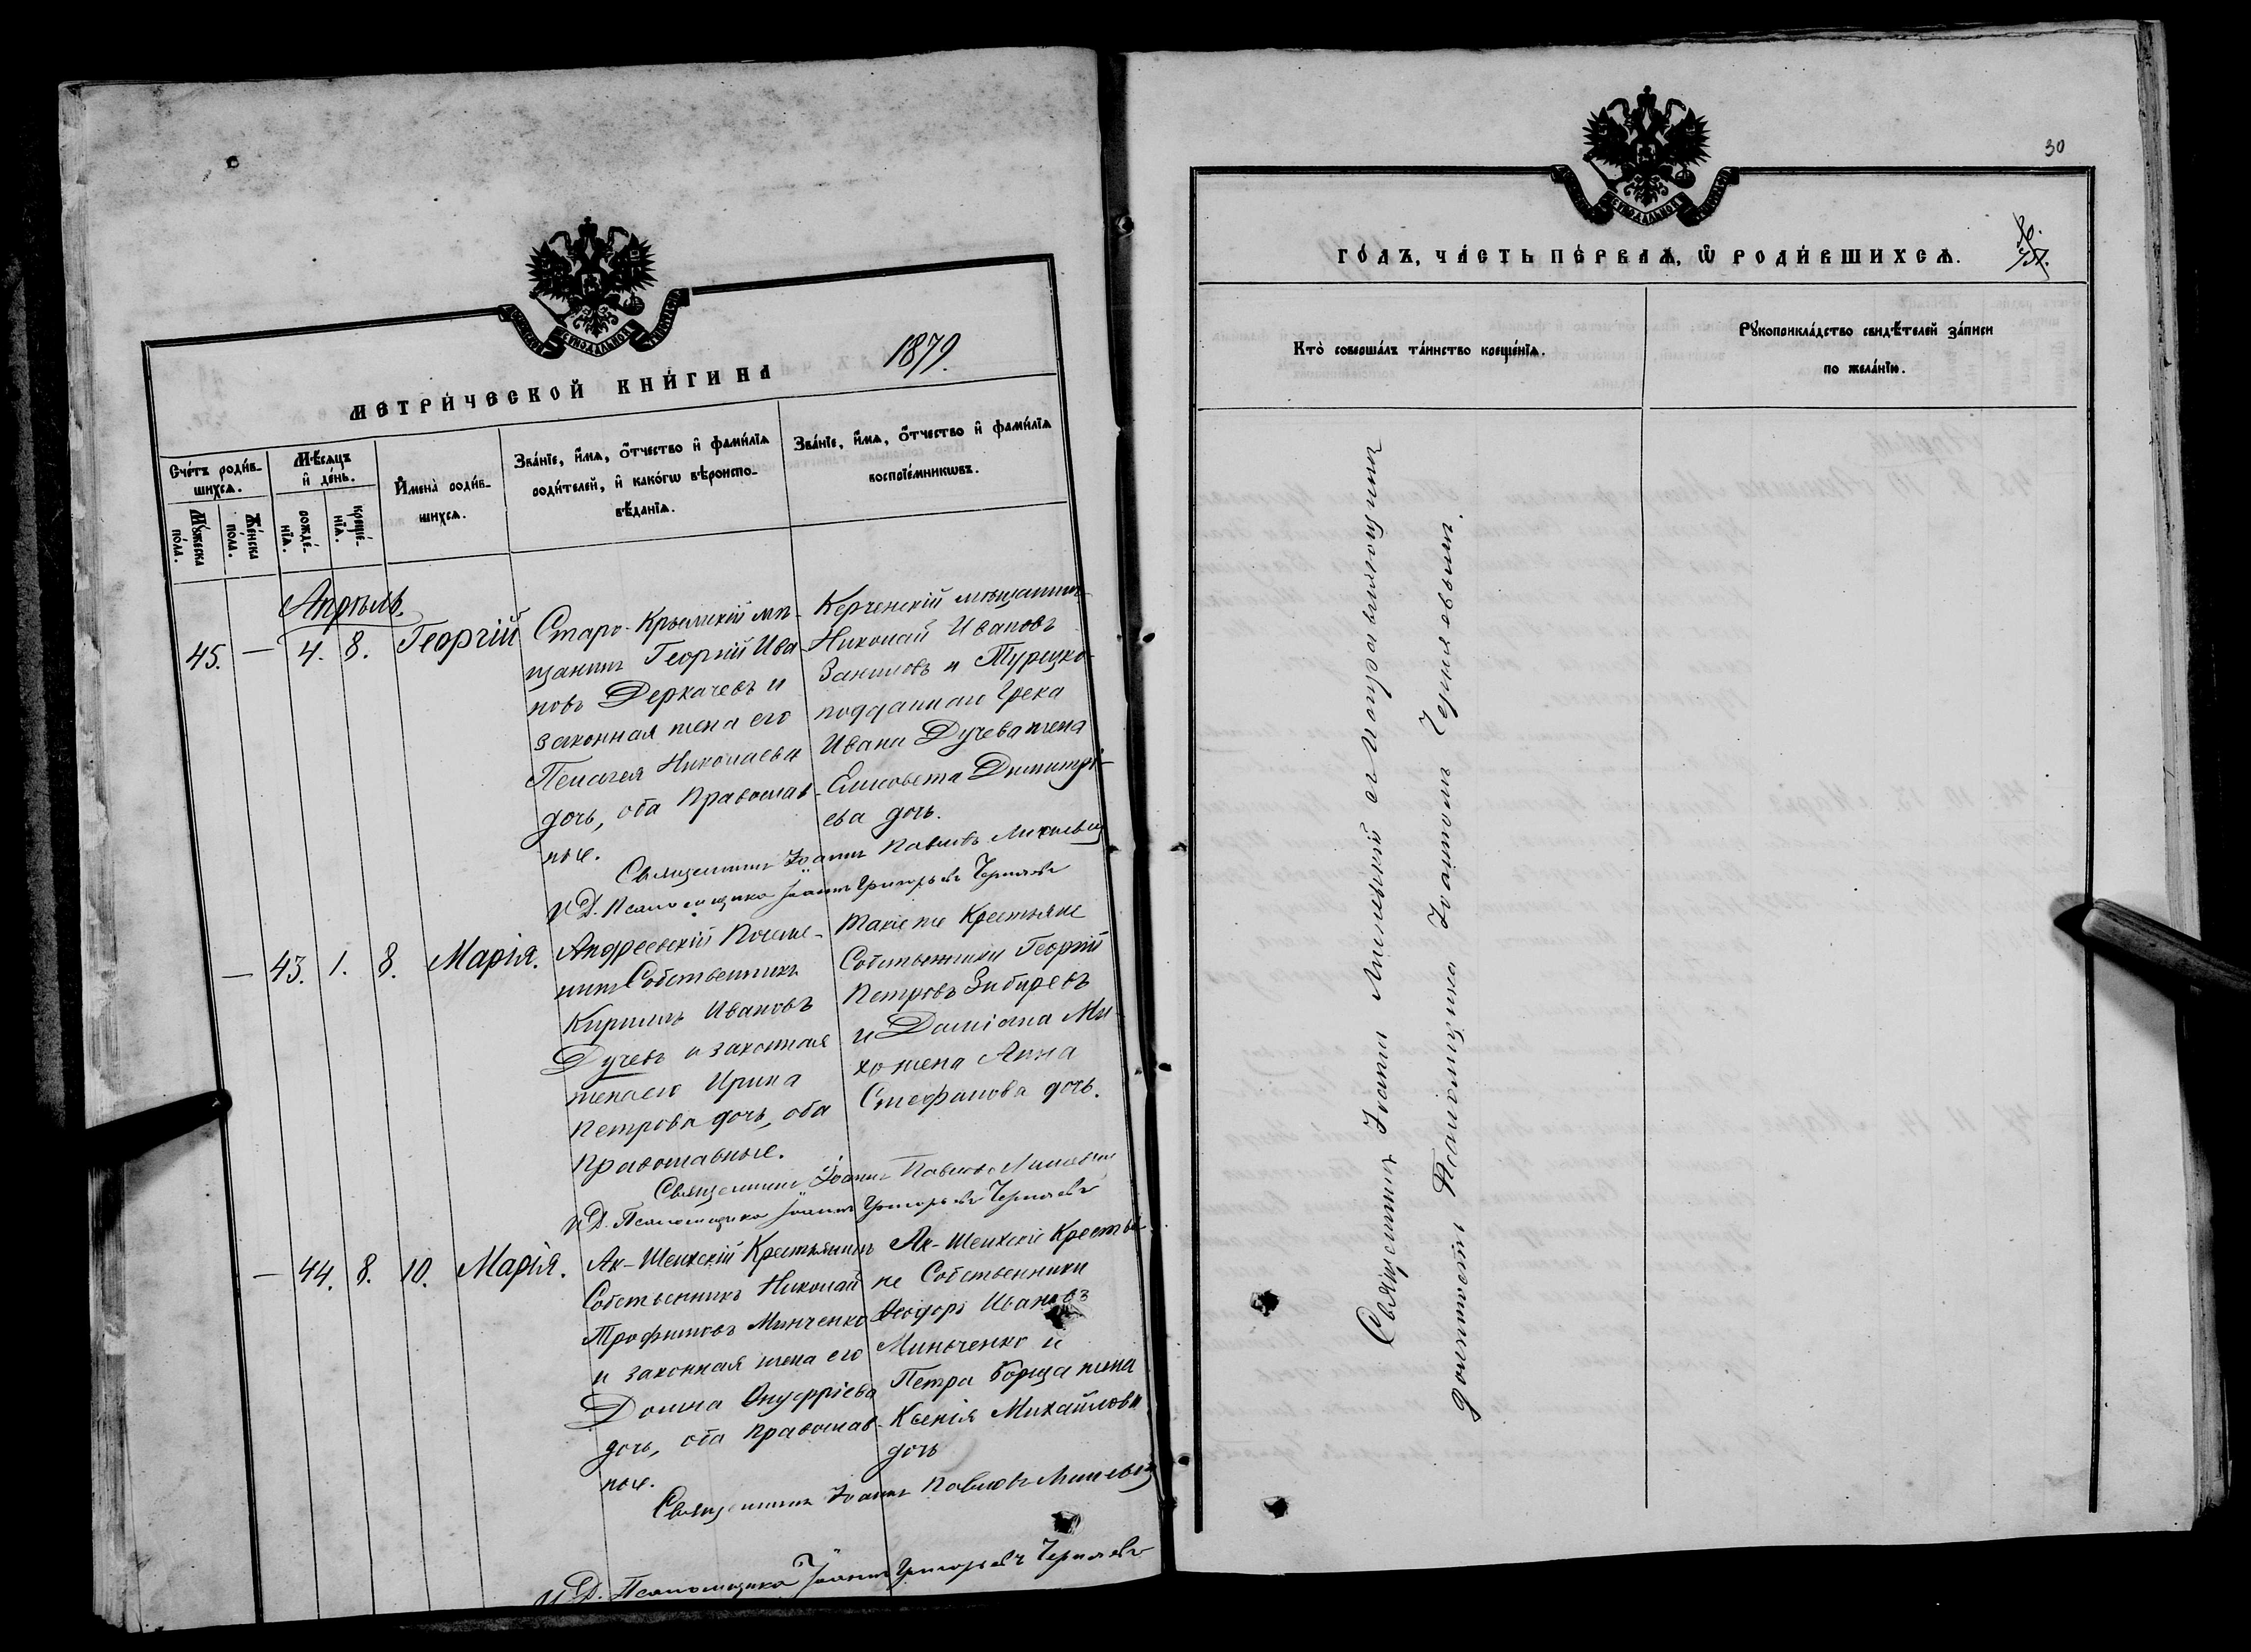 МЕТРИ́ЧЕСКОЙ КНИ́ГИ НА 1879.
Сче́тъ роди́в-
шихсѧ.
Мꙋ́жеска
по́ла.
Же́нска
по́ла.
Мѣ́сѧцъ
и҆ де́нь.
рожде́-
нїѧ.
креще́-
нїѧ.
И҆мена̀ роди́в-
шихсѧ.
Зва́нїе, и҆́мѧ, ѻ҆́тчество и҆ фами́лїѧ
роди́телей, и҆ како́гѡ вѣроиспо-
вѣ́данїѧ.
Зва́нїе, и҆́мѧ, ѻ҆́тчество и҆ фами́лїѧ
воспрїе́мникѡвъ.
Апрѣль.
45. — 4. 8. Георгій
Старо-Крымскій мѣ-
щанинъ Георгій Ива-
новъ Деркачевъ и
законная жена его
Пелагея Николаева
дочь, оба Православ-
ные.
Керченскій мѣщанинъ
Николай Ивановъ
и Турецко-
подданнаго Грека
Ивана Дучева жена
Елисовета Димитрі-
ева дочь.
Священникъ Іоаннъ Павловъ
И. Д. Псаломщика Іоаннъ Григорьевъ Чернявъ
— 43. 1. 8. Марія.
Андреевскій Поселя-
нинъ Собственникъ
Кириллъ Ивановъ
Дучевъ и законная
жена его Ирина
Петрова дочь, оба
Православные.
Такіе же Крестьяне
Собственники Георгій
Петровъ Зибиревъ
и Даміана Ми-
хо жена Анна
Стефанова дочь.
Священникъ Іоаннъ Павловъ
И. Д. Псаломщика Іоаннъ Григорьевъ Чернявъ
— 44. 8. 10. Марія.
Ак-Шеихскій Крестьянинъ
Собственникъ Николай
Трофимовъ Минченко
и законная жена его
Домна Онуфріева
дочь, оба Православ-
ные.
Ак-Шеихскіе Крестья-
не Собственники
Ѳеодоръ Ивановъ
Минченко и
Петра Борща жена
Ксенія Михайлова
дочь
Священникъ Іоаннъ Павловъ
И. Д. Псаломщика Іоаннъ Григорьевъ Чернявъ
30
ГО́ДЪ, ЧА́СТЬ ПЕ́РВАѦ, Ѡ҆ РОДИ́ВШИХСѦ.
Кто̀ соверша́лъ та́инство креще́нїѧ.
Рꙋкоприкла́дство свидѣ́телей за́писи
по жела́нїю.
Священникъ Іоаннъ съ исправляющимъ
должность Псаломщика Іоанномъ Чернявымъ.